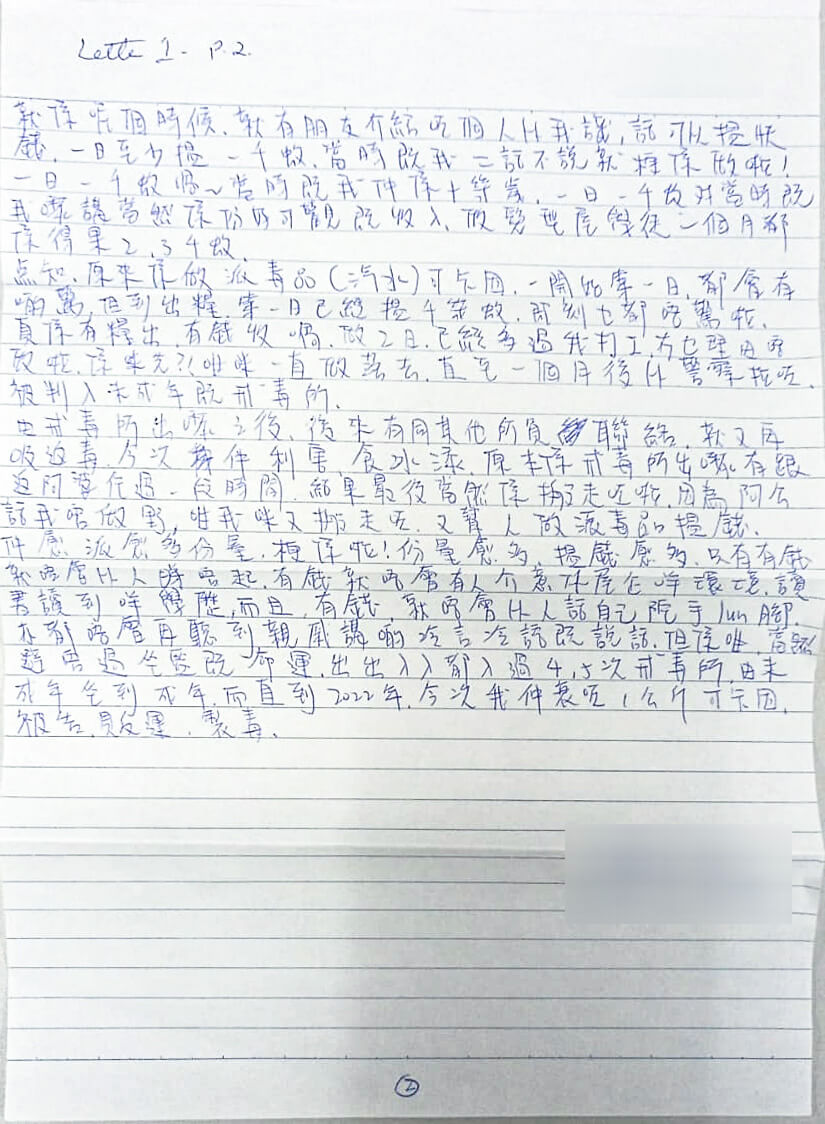 Letter 1 - P.2.
就係呢個時候,就有朋友介紹咗個人比我識,話可以搵快
錢,一日至少搵一千蚊,當時既我二話不說就梗係做啦!
一日一千蚊喎~當時既我仲係十幾歲,一日一千蚊對當時既
我嚟講當然係份好可觀既收入,做髮型屋學徒一個月都
係得果2,3千蚊.
点知,原來係做派毒品(汽水)可卡因,一開始第一日,都會有
啲驚,但到出糧,第一日已經搵千幾蚊,即刻乜都唔驚啦,
真係有糧出,有錢收喎,做2日,已經多過我打工,冇乜理由唔
做啦,係咪先?!咁咪一直做落去,直至一個月後比警察拉咗,
被判入未成年既戒毒所.
由戒毒所出嚟之後,後來有同其他所員聯絡,就又再
吸返毒,今次仲利害,食冰添,原本係戒毒所出嚟有跟
返阿婆住過一段時間,結果最後當然係搬走咗啦,因為阿公
話我唔做野,咁我咪又搬走咗,又幫人做派毒品搵錢,
仲愈派愈多份量,梗係啦!份量愈多,搵錢愈多,只有有錢
就唔會比人睇唔起,有錢就唔會有人介意你屋企咩環境,讀
書讀到咩學歷,而且,有錢,就唔會比人話自己陀手lun腳,
亦都唔會再聽到親戚講啲冷言冷語既說話,但係唯,
避唔過坐監既命運,出出入入都入過4,5次戒毒所,由未
成年坐到成年,而直到2022年,今次我仲衰咗1公斤可卡因,
被告販運,製毒.
②